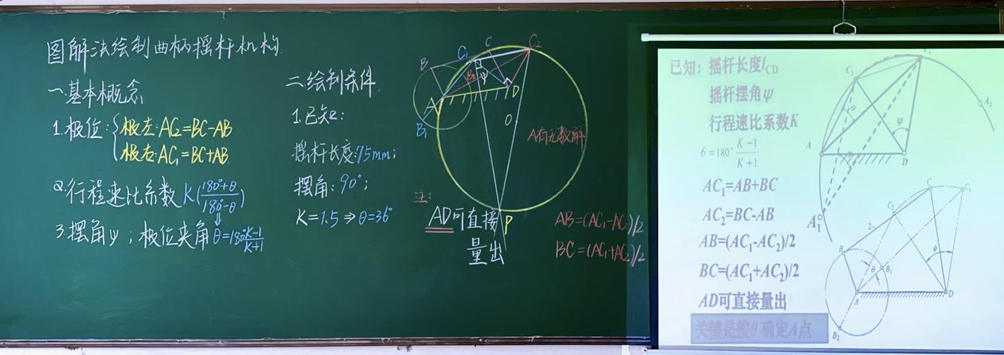 图解法绘制曲柄摇杆机构
一.基本概念
1.极位:
极左:AC₂=BC-AB
极右:AC₁=BC+AB
2.行程速比系数K(180°+θ/180°-θ)
3.摆角ψ;极位夹角θ=180°K-1/K+1
二.绘制条件
1.已知:
摇杆长度:75mm;
摆角:90°;
K=1.5⇒θ=36°
B C₁ C C₂
B₂ ψ
A D
B₁ O
A有无数解
P
注:
AD可直接
量出
AB=(AC₁-AC₂)/2
BC=(AC₁+AC₂)/2
已知:摇杆长度lCD
摇杆摆角ψ
行程速比系数K
θ=180°K-1/K+1
AC₁=AB+BC
AC₂=BC-AB
AB=(AC₁-AC₂)/2
BC=(AC₁+AC₂)/2
AD可直接量出
A ψ D
C C₁
C₂
B θ B₁ ψ
A D
B₂